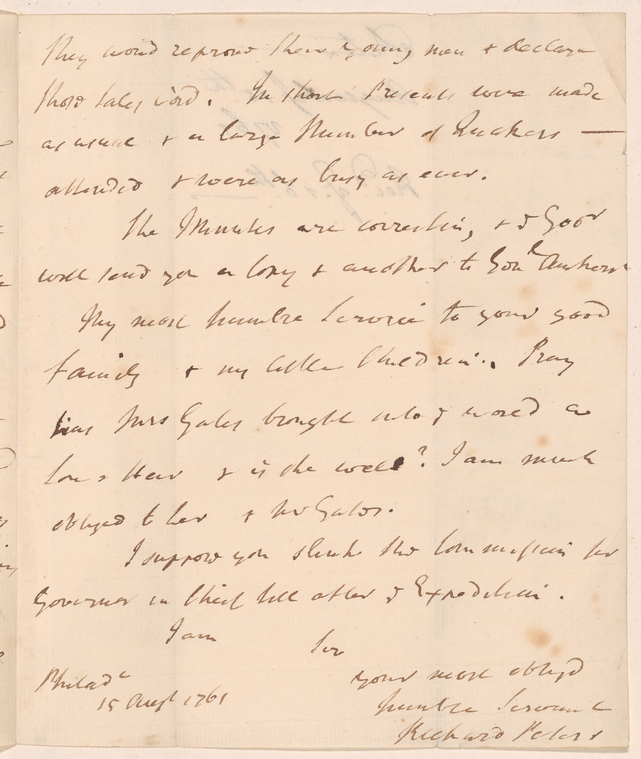 they would reprove their young men & declare
those Sales void. In short Presents were made
as usual & a large Number of Quakers —
attended & were as busy as ever.
The Minutes are correcting, & ye Govr
will send you a Copy & another to Genl Amherst
My most humble Service to your good
family & my little Children. Pray
has Mrs Gates brought into ye world a
Son & Heir & is she well? I am much
obliged to her & Mr Gates.
I suppose you the Commission for
Governor in Chief till after ye Expedition.
I am Sir
your most obligd
Philada
15 Augt 1761
humble Servant
Richard Peters